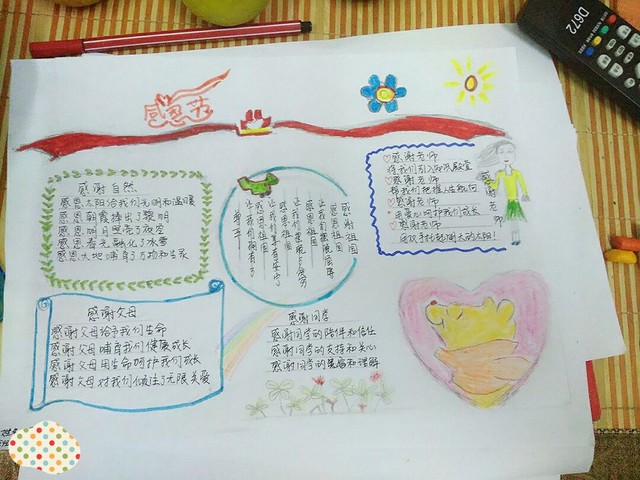 感恩节
感谢自然
感恩太阳给我们光明和温暖
感恩朝霞捧出了黎明
感恩明月照亮了夜空
感恩春光融化了冰雪
感恩大地哺育了万物和生灵
感谢祖国
感恩祖国
感恩祖国
感恩祖国
感谢老师
将我们引入知识殿堂
感谢老师
帮我们把握人生航向
感谢老师
用爱心呵护我们成长
感谢老师
用双手托起明天的太阳!
感谢老师
感谢父母
感谢父母给予我们生命
感谢父母哺育我们健康成长
感谢父母用生命呵护我们成长
感谢父母对我们倾注了无限关爱
感谢同学
感谢同学的陪伴和信任
感谢同学的支持和关心
感谢同学的宽容和理解
D672